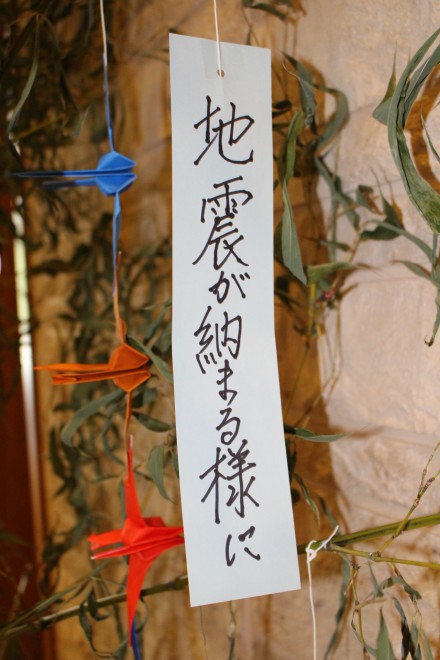 地震が納まる様に